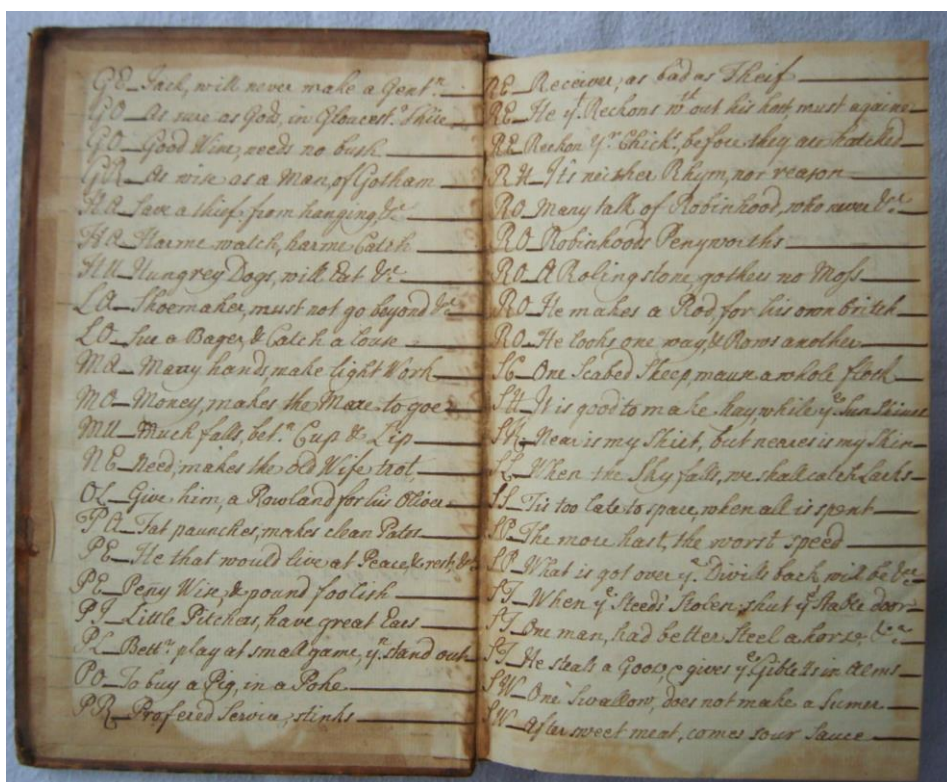 GE_Jack, will never make a Gent.n
GO_As sure as God, in Glocest.r Shire
GO_Good Wine, needs no bush
GR_As wise as a Man, of Gotham
HA_Save a thief from hanging &c
HA_Harme watch, harme Catch
HU_Hungrey Dogs, will Eat &c
LA_Shoemaker, must not go beyond &c
LO_Sue a Bager, & Catch a Louse
MA_Many hands, make light Work
MO_Money, makes the Mare to goe
MU_Much falls, bet.n Cup & Lip
NE_Need, makes the old Wife trot,
OL_Give him, a Rowland for his Oliver
PA_Fat paunches, makes clean Pates
PE_He that would live at Peace, & rest, &c
PE_Peny Wise, & pound foolish
PI_Little Pitchers, have great Ears
PL_Bett.r play at small game, yn. stand out
PO_To buy a Pig, in a Poke
PR_Profered Service, stinks
RE_Receiver, as bad as Theif
RE_He yt. Reckons wth out his host, must againe
RE_Reckon yr Chick.s before they are hatched
RH_Its neither Rhym, nor reason
RO_Many talk of Robinhood, who never &c
RO_Robinhoods Penyworths
RO_A Roling stone, gathers no Moss
RO_He makes a Rod, for his own britch
RO_He looks one way, & Rows another
SC_One Scabed Sheep, maurs a whole flock
SH_It is good to make, hay, while ye Sun Shines
SK_Near is my Shirt, but neares is my Skin
SL_When the Sky falls, we shall catch Larks
SP_Tis too late to spare, when all is spent
SP_The more hast, the worst speed
SP_What is got over ye. Divills back will be &c
ST_When ye Steed's Stolen, shut ye Stable door
ST_One man, had better Steel a horse, &c
ST_He steals a Goose, & gives ye Giblets in Alms
SW_One Swallow, does not make a Sumer
SW_After sweet meat, comes sour Sauce